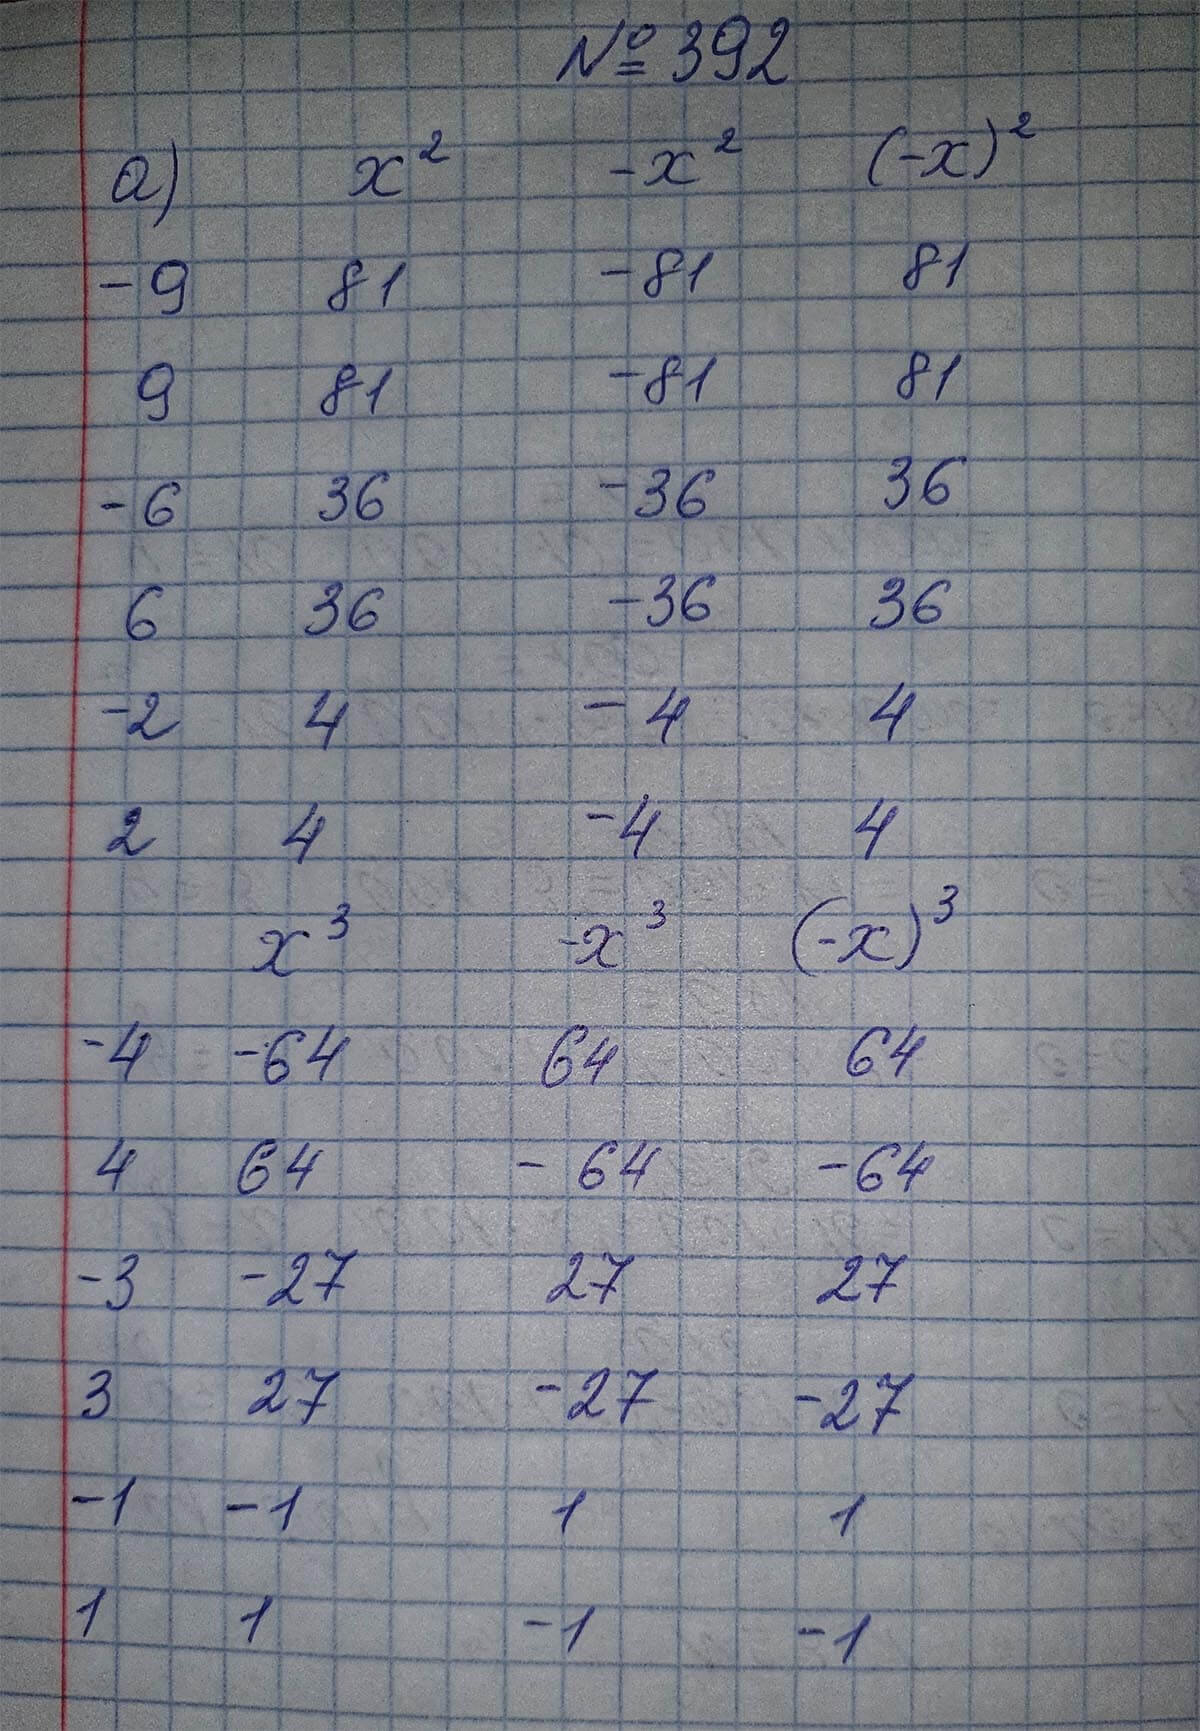 № 392
а) x² -x² (-x)²
-9 81 -81 81
9 81 -81 81
-6 36 -36 36
6 36 -36 36
-2 4 -4 4
2 4 -4 4
x³ -x³ (-x)³
-4 -64 64 64
4 64 -64 -64
-3 -27 27 27
3 27 -27 -27
-1 -1 1 1
1 1 -1 -1